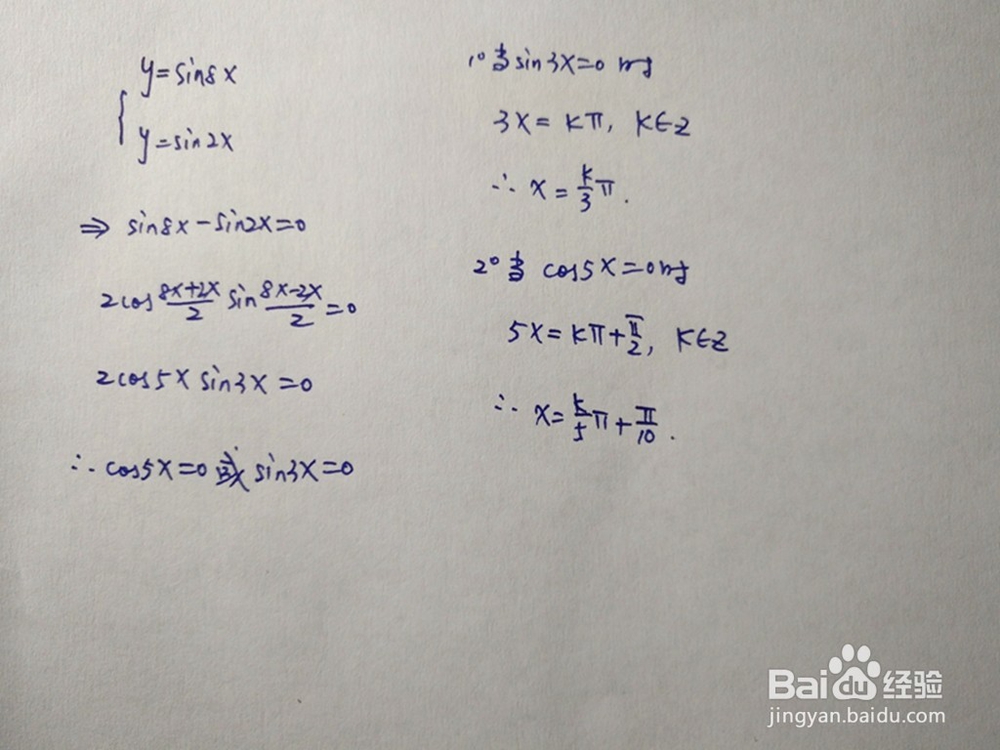 y=sin8x
y=sin2x
⇒ sin8x-sin2x=0
2cos\frac{8x+2x}{2} sin\frac{8x-2x}{2}=0
2cos5x sin3x=0
∴ cos5x=0或sin3x=0
1°当sin3x=0时
3x=kπ, k∈Z
∴ x=\frac{k}{3}π.
2°当 cos5x=0时
5x=kπ+\frac{π}{2}, k∈Z
∴ x=\frac{k}{5}π+\frac{π}{10}.
Baidu经验
jingyan.baidu.com